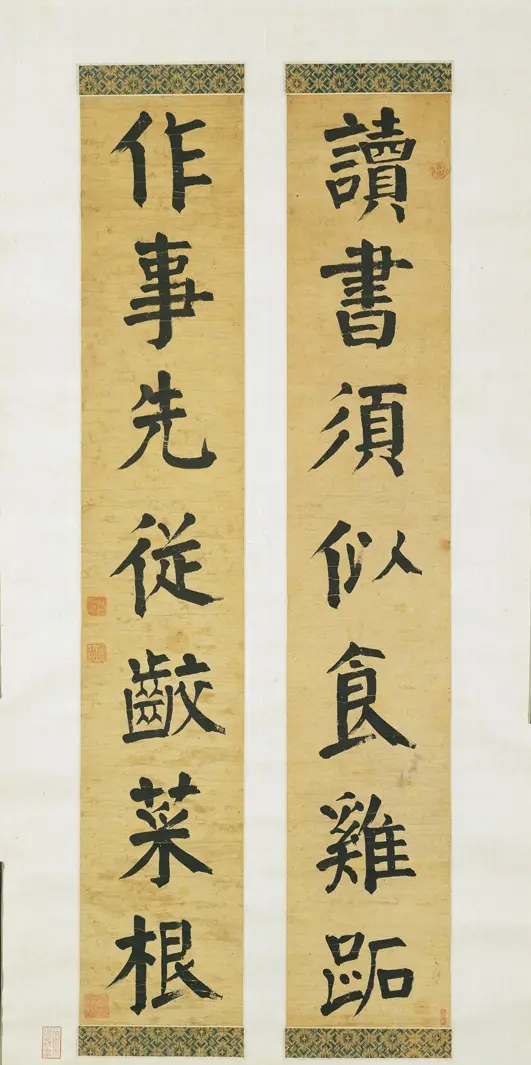 讀書須似食雞跖
作事先従齩菜根